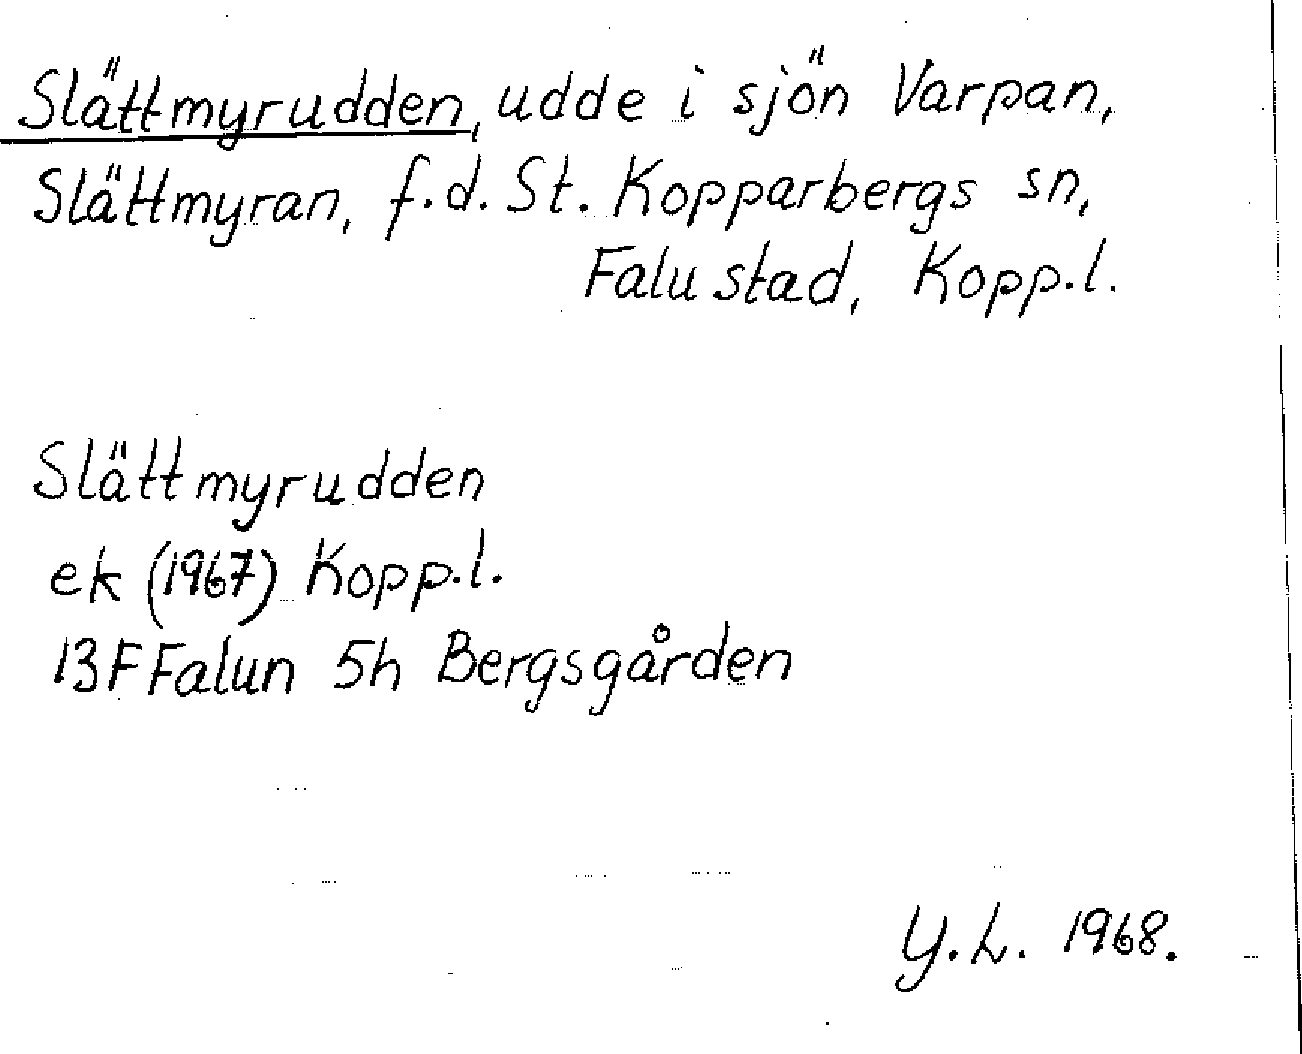 Slättmyrudden, udde i sjön Varpan,
Slättmyran, f.d. St. Kopparbergs sn,
Falu stad, Kopp.l.
Slättmyrudden
ek (1967) Kopp.l.
13F Falun 5h Bergsgården
Y.L. 1968.